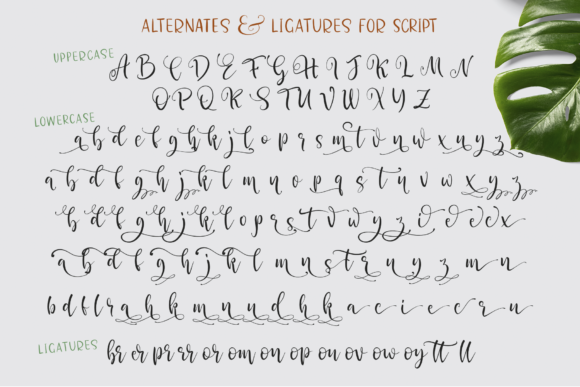 ALTERNATES & LIGATURES FOR SCRIPT
UPPERCASE
A B C D E F G H I J K L M N
O P Q R S T U V W X Y Z
LOWERCASE
a b d e f g h k j l o p r s m t v n w x u y z
a b d f g h j k l m n o p q s t u v w x y z
b d f g h j k l o p r s t v w y z
a b d f g h j k l m n s t r u y z m n
b d f l r a h k m n u d h k a c i e c r u
LIGATURES
br er pr rr or om on op ou ov ow oy tt ll